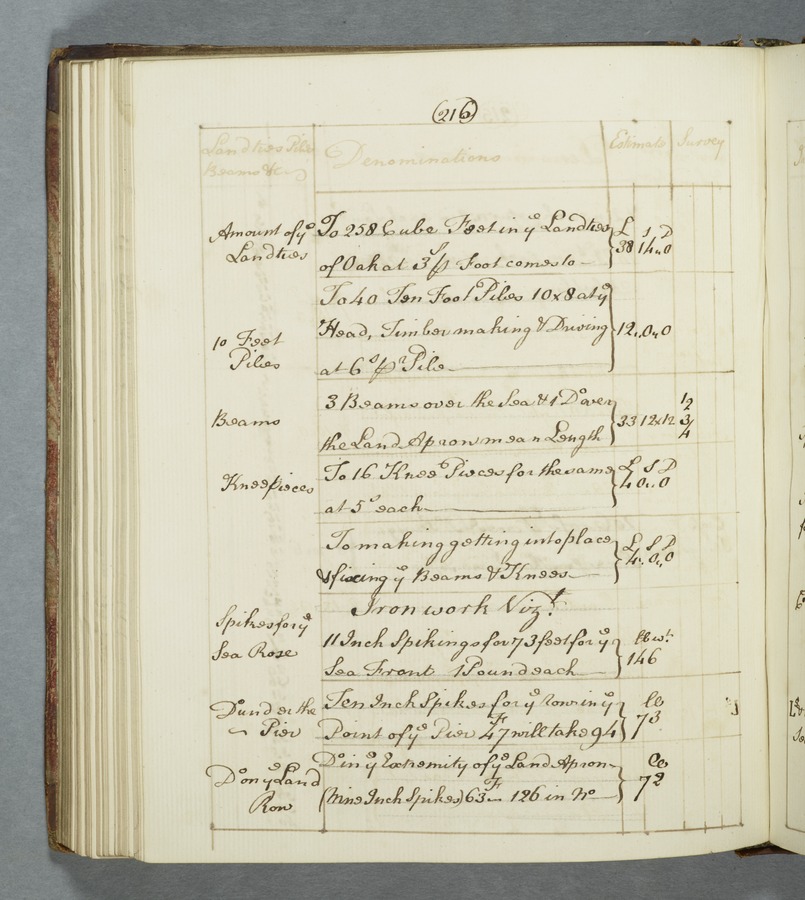 (216)
Landties Piles Denominations Estimate Survey
Beams &c
Amount of yᵉ To 258 Cube Feet in yᵉ Landties £ S D
Landties of Oak at 3ˢ/ p Foot comes to 38 14 „ 0
To 40 Ten Foot Piles 10 x 8 at yᵉ
10 Feet Head, Timber making & Driving 12 „ 0 „ 0
Piles at 6ˢ/ pʳ Pile
3 Beams over the Sea & 1 Dᵒ over
Beams the Land Apron mean Length 33 12 x 12 1/2 3/4
Kneepieces To 16 Knee Pieces for the same £ S D
at 5ˢ each 4 0 „ 0
To making getting into place £ S D
& fixing yᵉ Beams & Knees 4 „ 0 „ 0
Iron work Vizᵗ
Spikes for yᵉ 11 Inch Spikings for 73 feet for yᵉ lb wᵗ
Sea Rose Sea Front 1 Pound each 146
Dᵒ under the Ten Inch Spikes for yᵉ row in yᵉ lb
Pier Point of yᵉ Pier 47 ᶠ will take 94 73
Dᵒ on yᵉ Land Dᵒ in yᵉ Extremity of yᵉ Land Apron lb
Row (Nine Inch Spikes) 63 ᶠ 126 in Nᵒ 72